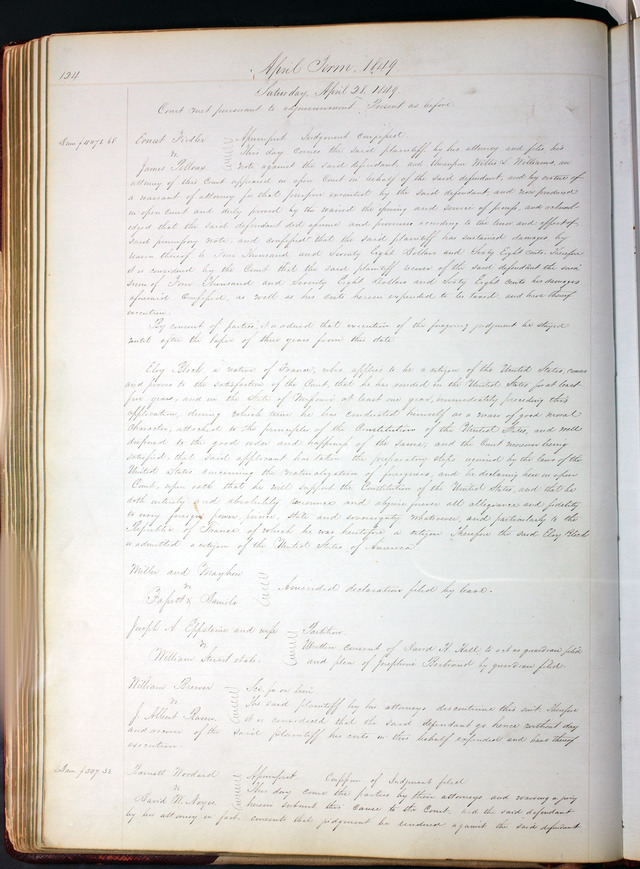 124
April Term 1849
Saturday April 21. 1849
Court met pursuant to adjournment Present as before
Ernst Fidler
vs
James
Assumpsit Judgment confessed
This day comes the said plaintiff by his attorney and files his
note against the said defendant and thereupon Willis L. Williams, an
attorney of this Court appeared in open Court on behalf of the said defendant, and by virtue of
a warrant of attorney for that purpose executed by the said defendant and now produced
in open court and duly proved by the waived the issuing and service of process, and acknowl
edged that the said defendant did assume and promise according to the tenor and effect of
said promissory note, and confessed that the said plaintiff has sustained damages by
reason thereof to Four Thousand and Seventy Eight Dollars and Sixty Eight Cents. Therefore
it is considered by the Court that the said plaintiff recover of the said defendant the said
sum of Four Thousand and Seventy Eight Dollars and Sixty Eight Cents his damages
aforesaid confessed, as well as his costs herein expended to be taxed and have thereof
execution.
By consent of parties, it is ordered that execution of the foregoing judgment be stayed
until after the lapse of three years from this date
Eloy Block, a native of France, who applies to be a citizen of the United States, comes
and proves to the satisfaction of the Court, that he has resided in the United States for at least
five years, and in the State of Missouri at least one year, immediately preceding this
application, during which time he has conducted himself as a man of good moral
character, attached to the principles of the Constitution of the United States, and well
disposed to the good order and happiness of the same; and the Court moreover being
satisfied, that said applicant has taken the preparatory steps required by the laws of the
United States concerning the naturalization of foreigners, and he declaring here in open
Court, upon oath that he will support the Constitution of the United States, and that he
doth entirely and absolutely renounce and abjure forever all allegiance and fidelity
to every foreign power, prince, state and sovereignty whatsoever, and particularly to the
Republic of France of which he was heretofore a citizen Therefore the said Eloy Block
is admitted a citizen of the United States of America
Miller and Mayhew
vs
Fassett & Daniels
Amended declaration filed by leave.
Joseph A. Eppstein and wife
vs
William Stewart et als.
Partition
Written consent of David N Hall to act as guardian filed
and plea of Josephine by guardian filed
William Brewer
vs
J. Albert
The said plaintiff by his attorneys discontinues this suit. Therefore
it is considered that the said defendant go hence without day
and recover of the said plaintiff his costs in this behalf expended and have thereof
execution.
Dam $307.32
Garnett Woodard
vs
David M. Noyes
Assumpsit Confession of Judgment filed
This day come the parties by their attorneys and waiving a jury
herein submit this cause to the Court, and the said defendant
by his attorney in fact consents that judgment be rendered against the said defendant